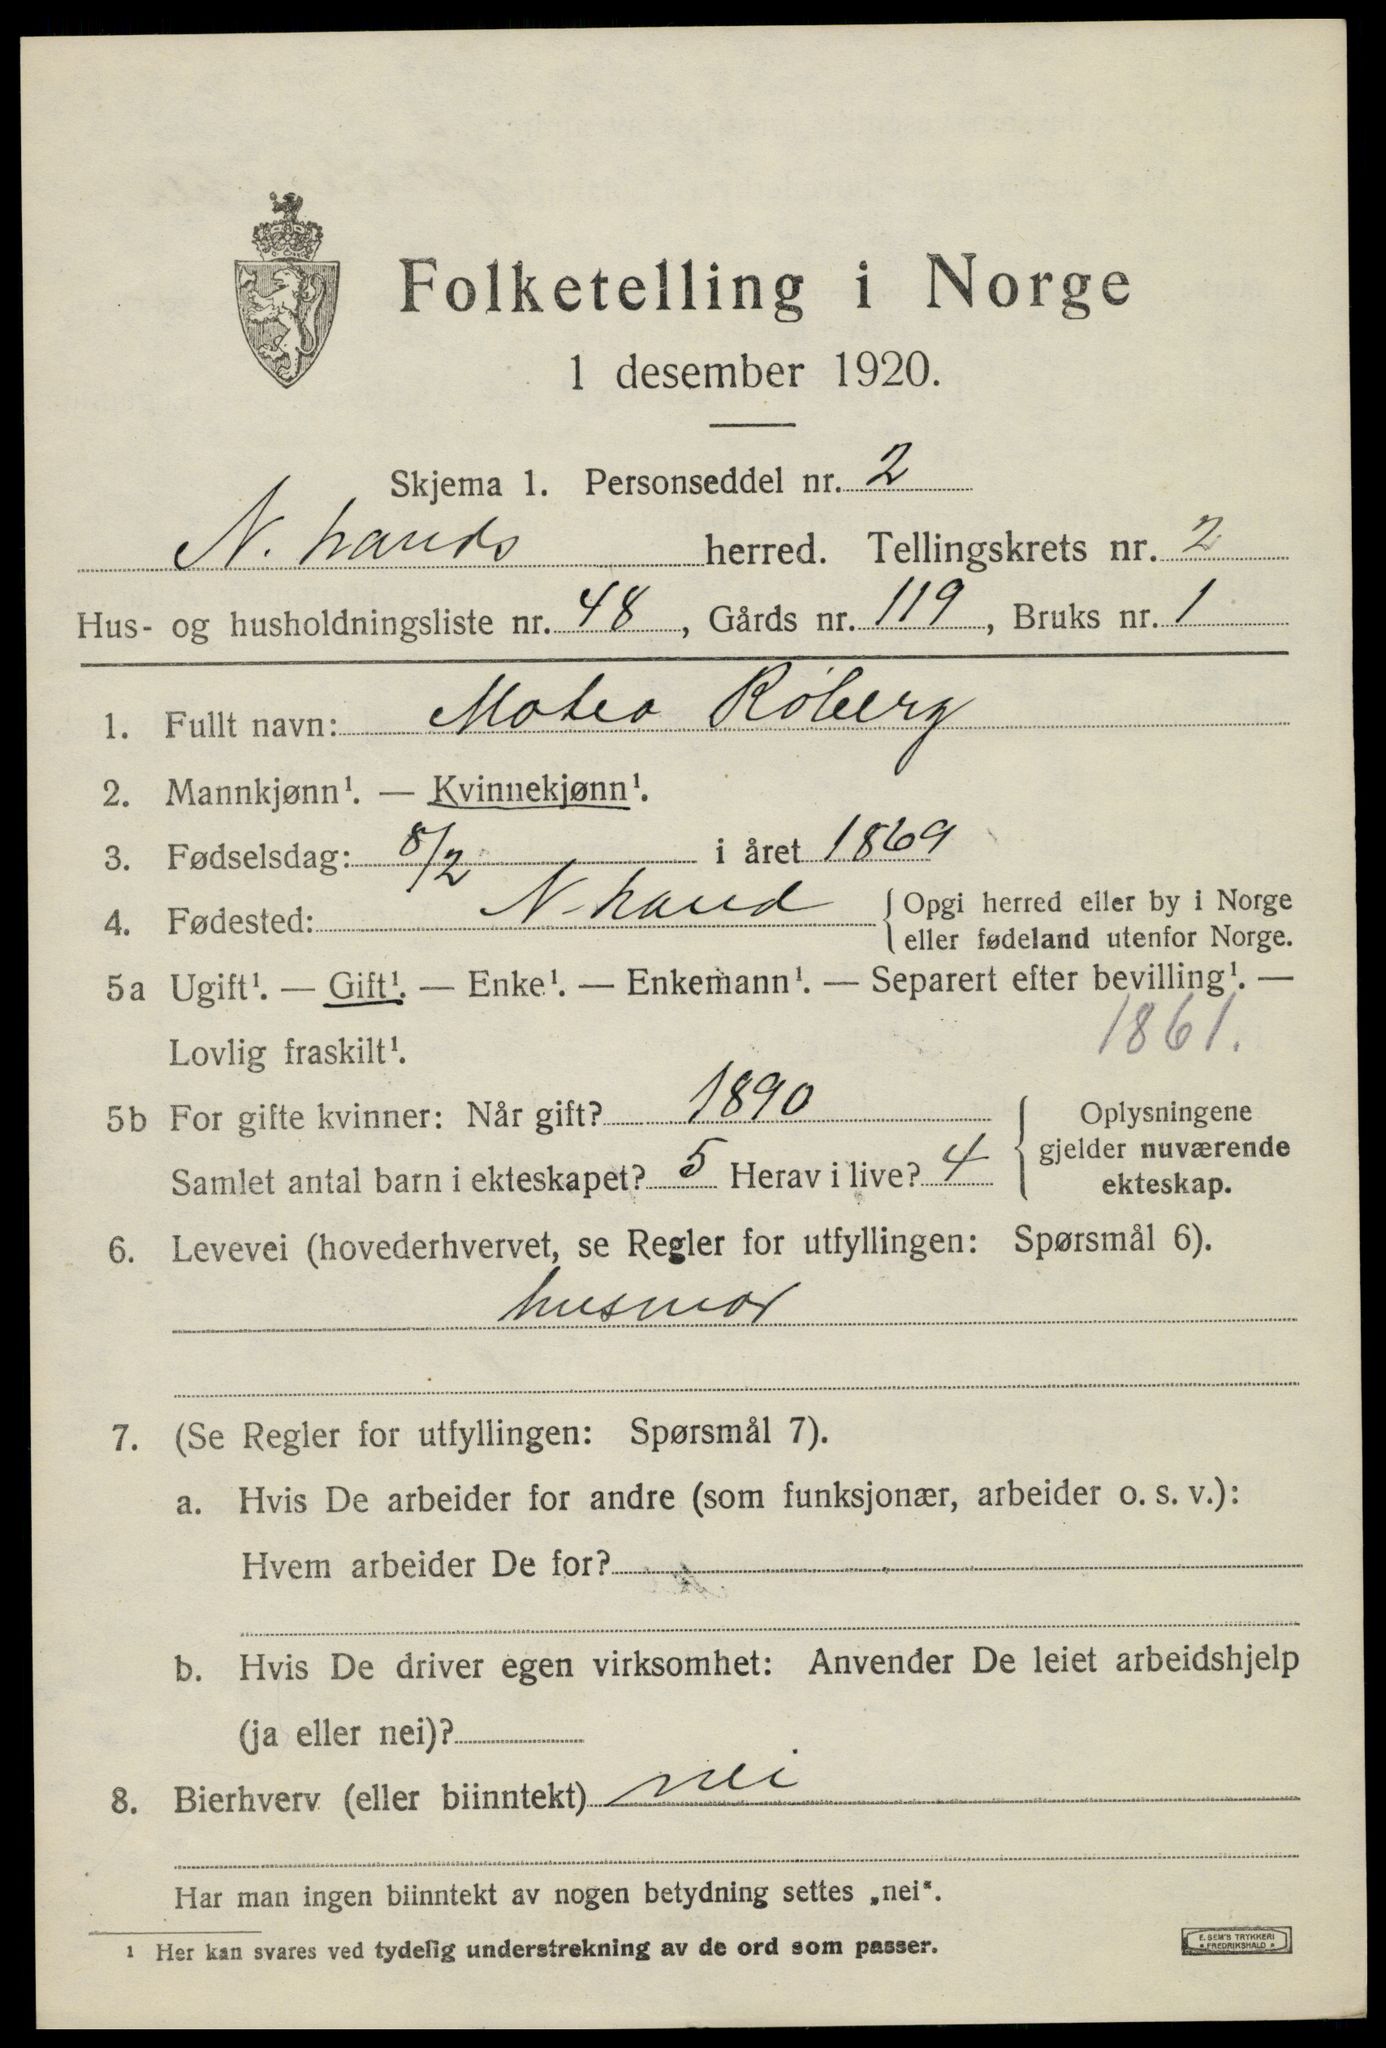 Folketelling i Norge
1 desember 1920.
Skjema 1. Personseddel nr. 2
N. Lands herred. Tellingskrets nr. 2
Hus- og husholdningsliste nr. 48, Gårds nr. 119, Bruks nr. 1
1. Fullt navn: Motea Røberg
2. Mannkjønn¹. — Kvinnekjønn¹.
3. Fødselsdag: 8/2 i året 1869
4. Fødested: N. Land { Opgi herred eller by i Norge
eller fødeland utenfor Norge.
5a Ugift¹. — Gift¹. — Enke¹. — Enkemann¹. — Separert efter bevilling¹. —
Lovlig fraskilt¹. 1861.
5b For gifte kvinner: Når gift? 1890
Samlet antal barn i ekteskapet? 5 Herav i live? 4
{ Oplysningene
gjelder nuværende
ekteskap.
6. Levevei (hovederhvervet, se Regler for utfyllingen: Spørsmål 6).
husmor
7. (Se Regler for utfyllingen: Spørsmål 7).
a. Hvis De arbeider for andre (som funksjonær, arbeider o. s. v.):
Hvem arbeider De for?
b. Hvis De driver egen virksomhet: Anvender De leiet arbeidshjelp
(ja eller nei)?
8. Bierhverv (eller biinntekt) nei
Har man ingen biinntekt av nogen betydning settes „nei“.
¹ Her kan svares ved tydelig understrekning av de ord som passer.
E. SEM'S TRYKKERI
* FREDRIKSHALD *